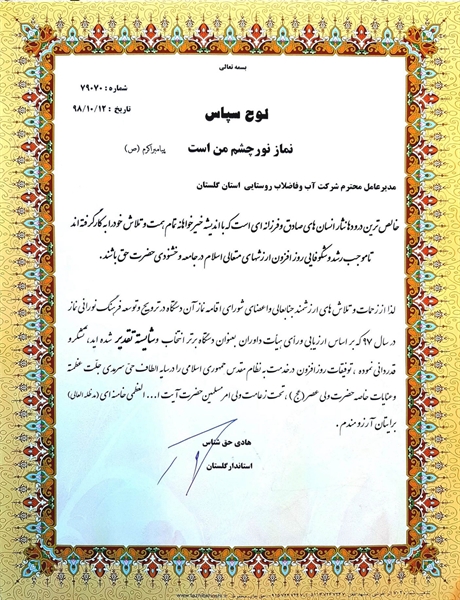 بسمه تعالی
شماره : ۷۹۰۷۰
تاریخ : ۹۸/۱۰/۱۲
لوح سپاس
نماز نور چشم من است پیامبر اکرم (ص)
مدیرعامل محترم شرکت آب وفاضلاب روستایی استان گلستان
خالص ترین درودها نثار انسان های صادق و فرزانه ای است که با اندیشه خیرخواهانه تمام همت و تلاش خود را به کار گرفته اند
تا موجب رشد و شکوفایی روز افزون ارزشهای متعالی اسلام در جامعه و خشنودی حضرت حق باشند.
لذا از زحمات و تلاش های ارزشمند جنابعالی و اعضای شورای اقامه نماز آن دستگاه در ترویج و توسعه فرهنگ نورانی نماز
در سال ۹۷ که بر اساس ارزیابی و رأی هیأت داوران بعنوان دستگاه برتر انتخاب و شایسته تقدیر شده اید، تشکر و
قدردانی نموده ، توفیقات روز افزون در خدمت به نظام مقدس جمهوری اسلامی را در سایه الطاف حق سرمدی جلّت عظمته
و عنایات خاصه حضرت ولی عصر (عج) ، تحت زعامت ولی امر مسلمین حضرت آیت ا... العظمی خامنه ای (مدظله العالی)
برایتان آرزومندم .
هادی حق شناس
استاندار گلستان